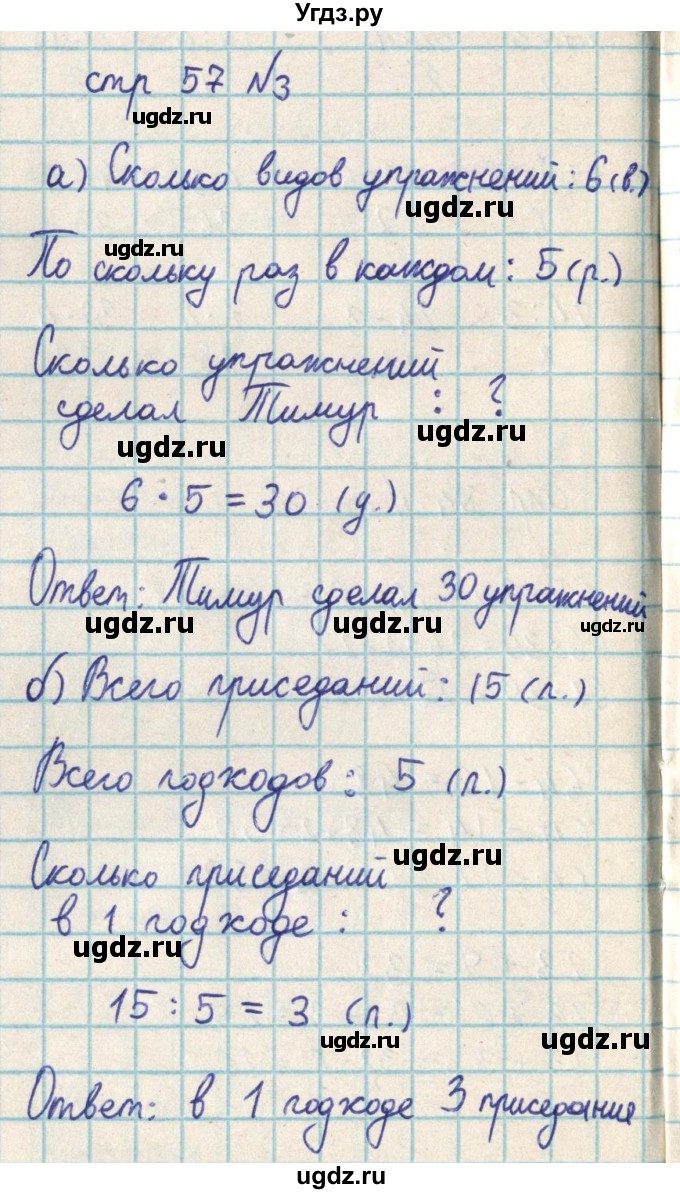 Угдз.ру
стр 57 №3
ugdz.ru
а) Сколько видов упражнений: 6 (в.)
ugdz.ru
ugdz.ru
По скольку раз в каждом: 5 (р.)
Сколько упражнений
сделал Тимур : ?
ugdz.ru
ugdz.ru
6 · 5 = 30 (у.)
Ответ: Тимур сделал 30 упражнений
ugdz.ru ugdz.ru ugdz.ru
б) Всего приседаний: 15 (п.)
Всего подходов: 5 (п.)
ugdz.ru
Сколько приседаний
в 1 подходе : ?
ugdz.ru
15 : 5 = 3 (п.)
ugdz.ru ugdz.ru
Ответ: в 1 подходе 3 приседания
ugdz.ru